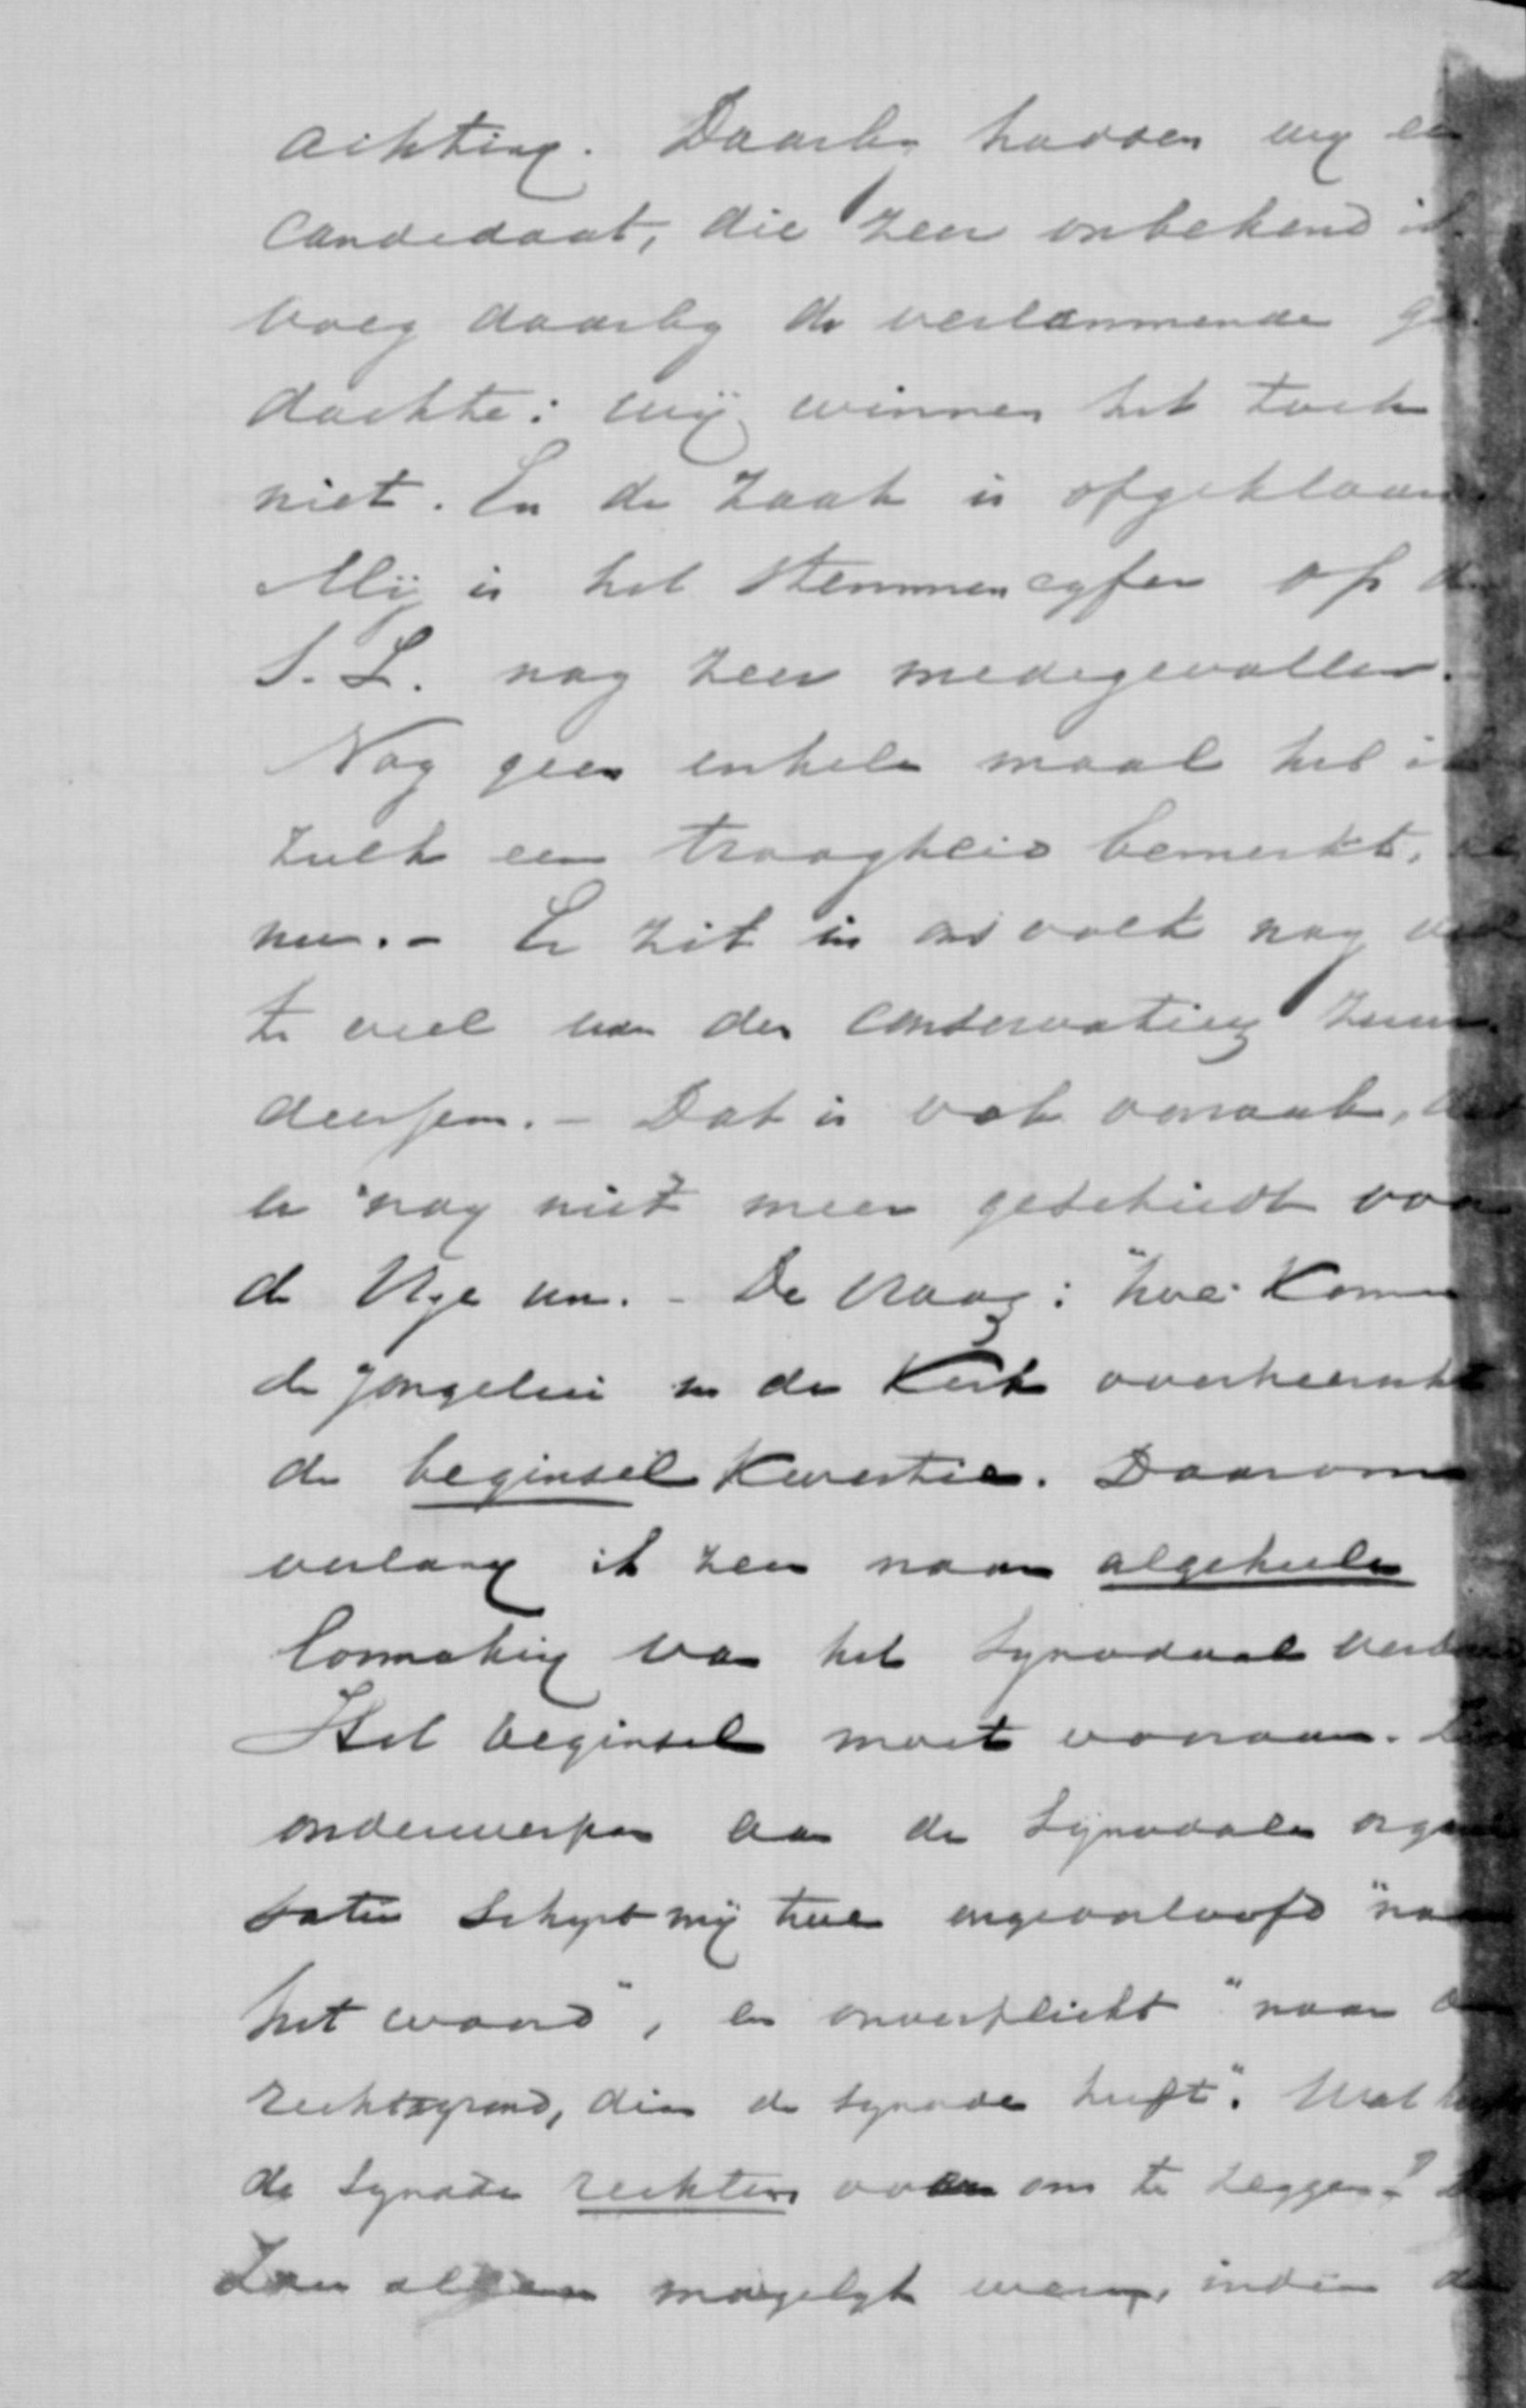 achting. Daarby hadden wy een
candidaat, die zeer onbekend is.
voeg daarby de verlammende ge-
dachte: wij winnen het toch
niet. En de zaak is opgeklaard
Mij is het stemmencyfer op de
S. L. nog zeer medegevallen.
Nog geen enkele maal heb ik
zulk een traagheid bemerkt, als
nu. - Er zit in ons volk nog veel
te veel van den conservatieven zuur-
deesem. - Dat is ook oorzaak, dat
er nog niet meer geschiedt voor
de Vrye un. - De vraag: "hoe komen
de jongelui in de Kerk overheerscht
de beginsel kwestie. Daarom
verlang ik zeer naar algeheele
losmaking van het Synodaal verband
Het beginsel moet vooraan.
onderwerpen aan de Synodale orga
satie schynt mij toe ongeoorloofd "naar
het woord", en onverplicht "naar den
rechtsgrond, dien de synode heeft". Wat heeft
de Synode rechtens over ons te zeggen?
Zou alleen mogelyk wezen, indien de